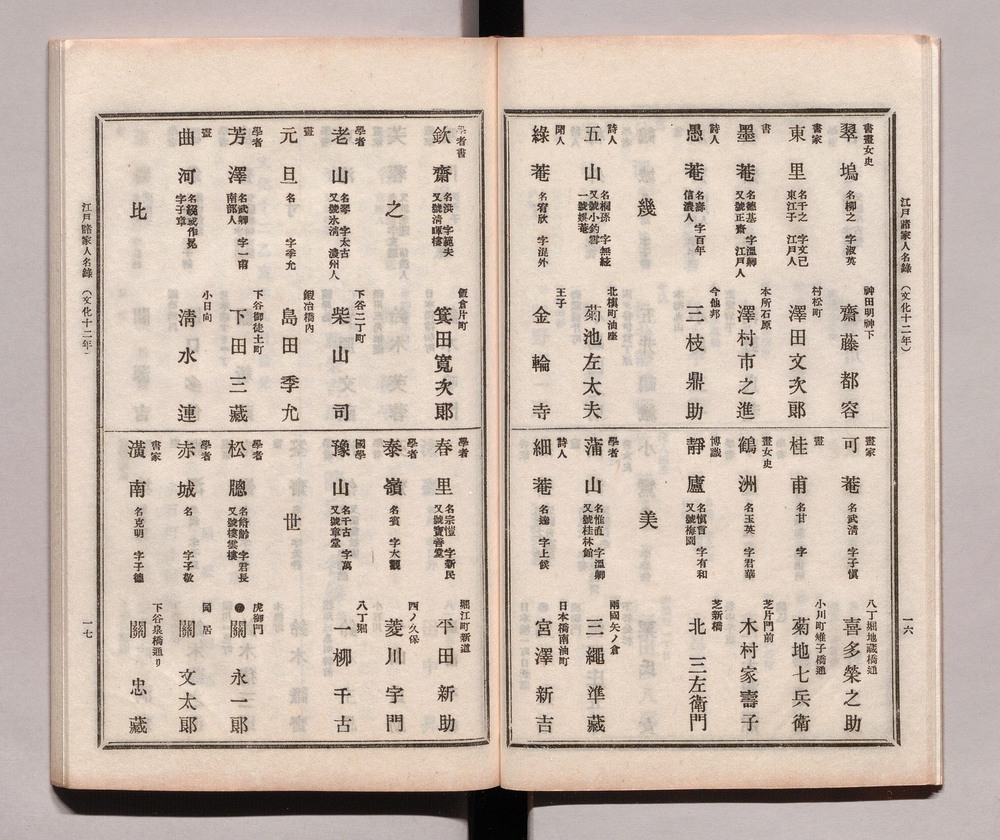 江戸諸家人名錄(文化十二年)
一六
書畫女史
翠塢 名柳之 字淑英
神田明神下
齋藤都容
書家
東里 名千之 字文己
東江子 江戸人
村松町
澤田文次郎
書
墨菴 名德基 字溫卿
又號正齋 江戸人
本所石原
澤村市之進
詩人
愚菴 字百年
信濃人
今他邦
三枝鼎助
幾
詩人
五山 名桐孫 字無絃
又號小釣雪
一號娯菴
北槇町油座
菊池左太夫
閑人
綠菴 名宥欣 字混外
王子
金輪寺
畫家
可菴 名武淸 字子愼
八丁堀地藏橋通
喜多榮之助
畫
桂甫 名甘 字
小川町雉子橋通
菊地七兵衛
畫女史
鶴洲 名玉英 字君華
芝片門前
木村家壽子
博識
靜廬 名愼言 字有和
又號梅園
芝新橋
北三左衛門
美
學者
蒲山 名惟直 字溫卿
又號桂林館
兩國矢ノ倉
三繩準藏
詩人
細菴 字上侯
日本橋南油町
宮澤新吉
江戸諸家人名錄(文化十二年)
一七
學者書
欽齋 又號淸暉樓
飯倉片町
箕田寬次郎
之
學者
老山 名琴 字太古
又號氷淸 濃州人
下谷二丁町
柴山司
畫
元旦 名 字季允
鍛冶橋內
島田季允
學者
芳澤 名武卿 字一甫
南部人
下谷御徒士町
下田三藏
畫
曲河 字子章
小日向
淸水連
比
學者
春里 名宗愷 字新民
又號寶善堂
堀江町新道
平田新助
學者
泰嶺 名賓 字大觀
四ノ久保
菱川宇門
國學
豫山 名千古 字萬
又號章堂
八丁堀
一柳千古
世
學者
松聰 名脩齡 字君長
又號樓雲樓
虎御門
關永一郎
學者
赤城 名 字子敬
同居
關文太郎
書家
潢南 名克明 字子德
下谷泉橋通リ
關忠藏